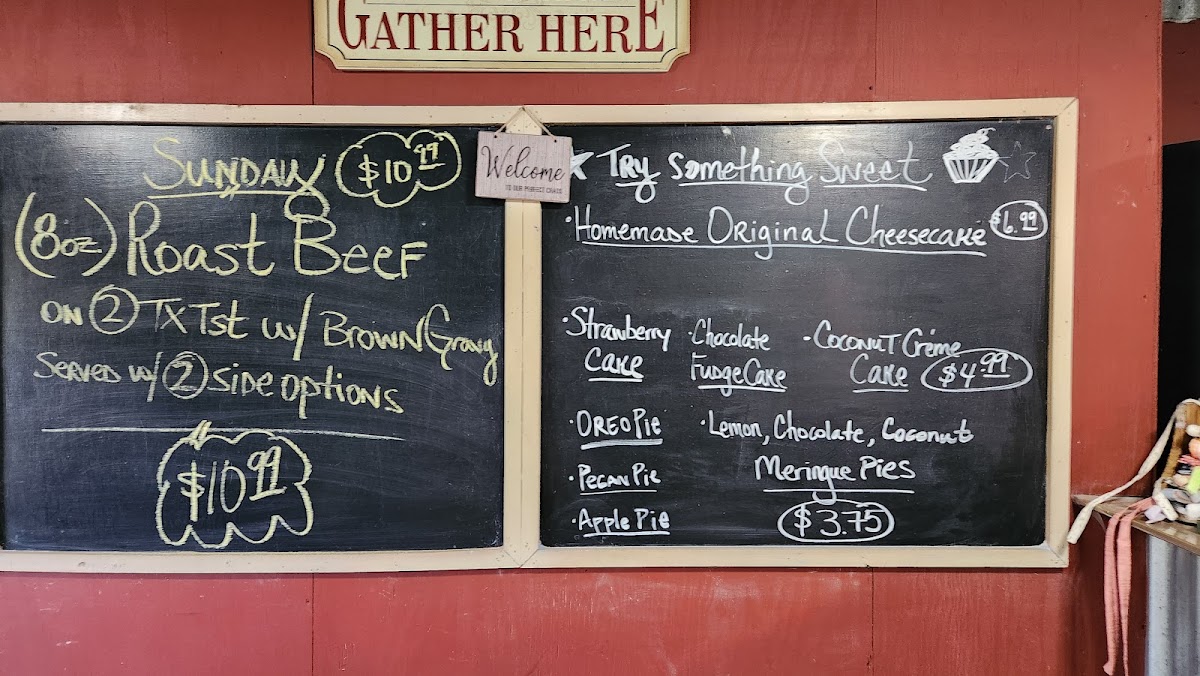 GATHER HERE
SUNDAY $10.99
(8oz) ROAST BEEF
ON 2 TX TST W/ BROWN Gravy
SERVED W/ 2 SIDE OPTIONS
$10.99
Welcome
TO OUR PERFECT CHAOS
TRY Something Sweet
·Homemade Original Cheesecake $6.99
·Strawberry Cake
·Chocolate Fudge Cake
·Coconut Crème Cake $4.99
·OREO Pie
·Lemon, Chocolate, Coconut
Meringue Pies
·Pecan Pie
·Apple Pie
$3.75